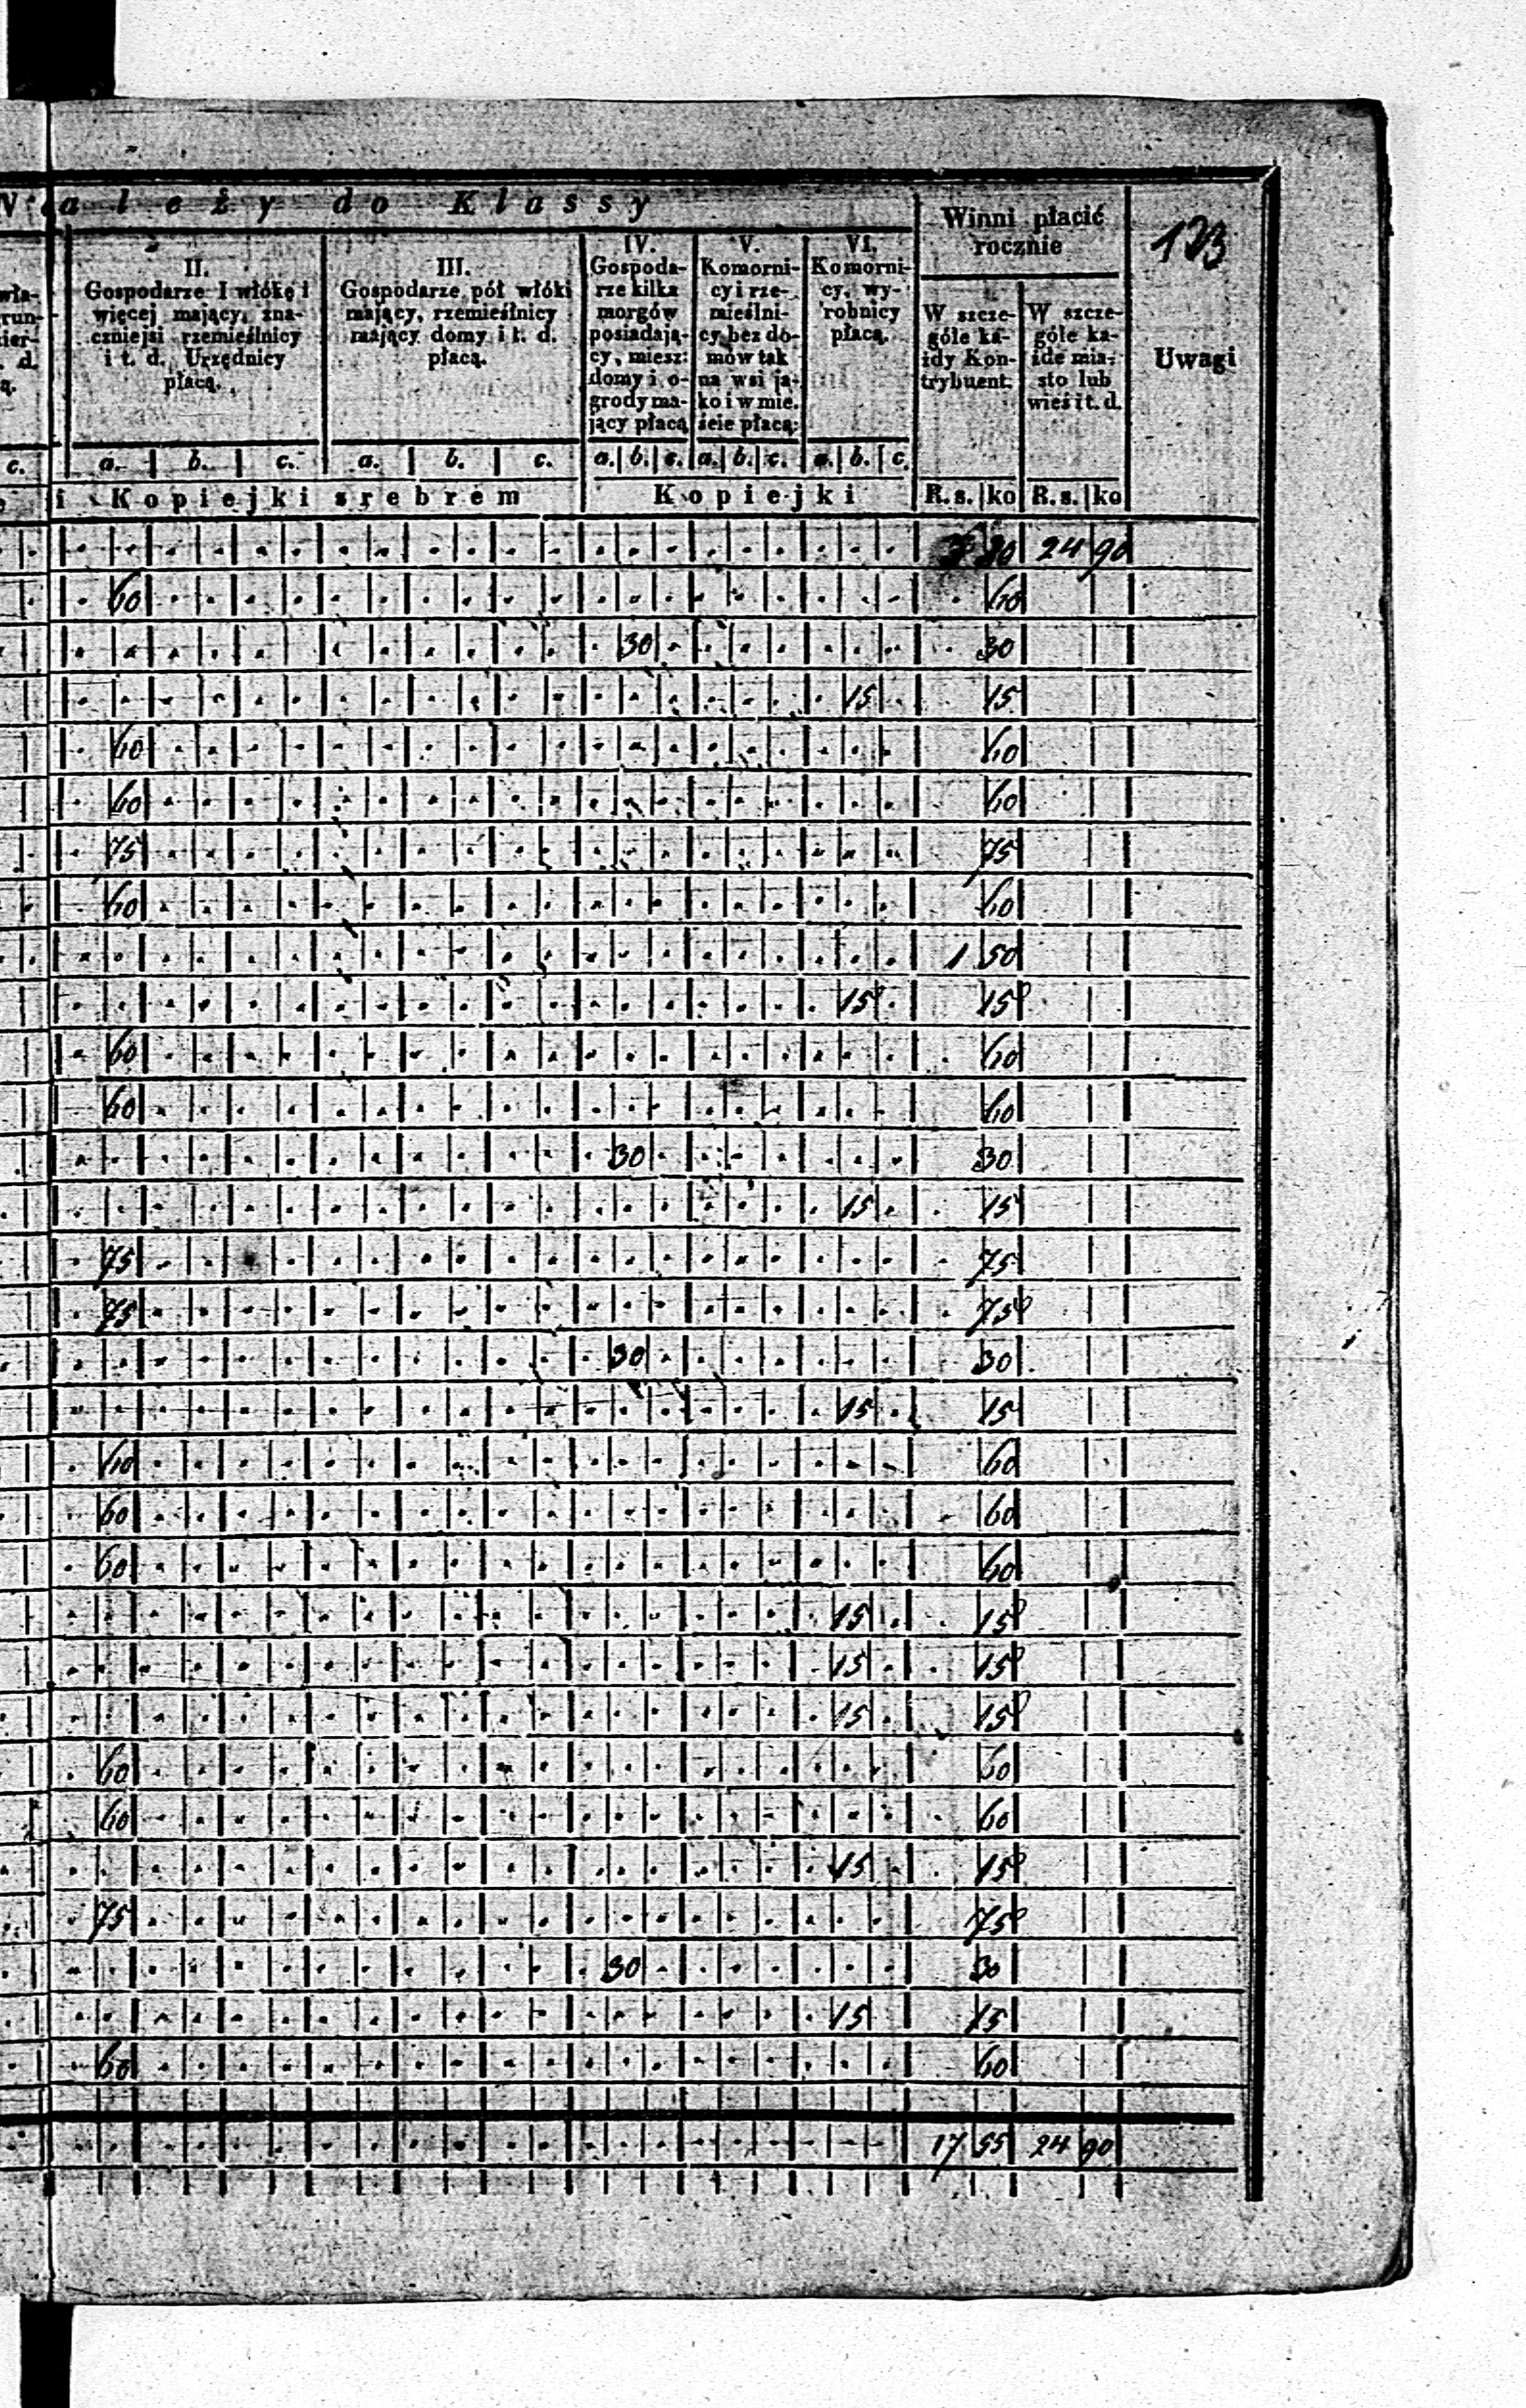 a l e ż y d o K l a s s y
Winni płacić
rocznie
123
II.
Gospodarze I włókę i
więcej mający, zna-
czniejsi rzemieślnicy
i t. d. Urzędnicy
płacą.
III.
Gospodarze pół włóki
mający, rzemieślnicy
mający domy i t. d.
płacą.
IV.
Gospoda-
rze kilka
morgów
posiadają-
cy, miesz:
domy i o-
grody ma-
jący płacą
V.
Komorni-
cy i rze-
mieślni-
cy bez do-
mów tak
na wsi ja-
ko i w mie.
ście płacą:
VI.
Komorni-
cy, wy-
robnicy
płacą.
W szcze-
góle ka-
żdy Kon-
trybuent.
W szcze-
góle ka-
żde mia-
sto lub
wieś i t. d.
Uwagi
c. a. b. c. a. b. c. a. b. c. a. b. c. a. b. c.
i Kopiejki srebrem Kopiejki R. s. ko R. s. ko
30 24 90
60 60
30 30
15 15
60 60
60 60
75 75
60 60
1 50
15 15
60 60
60 60
30 30
15 15
75 75
75 75
30 30
15 15
60 60
60 60
60 60
15 15
15 15
15 15
60 60
60 60
15 15
75 75
30 30
15 15
60 60
17 55 24 90